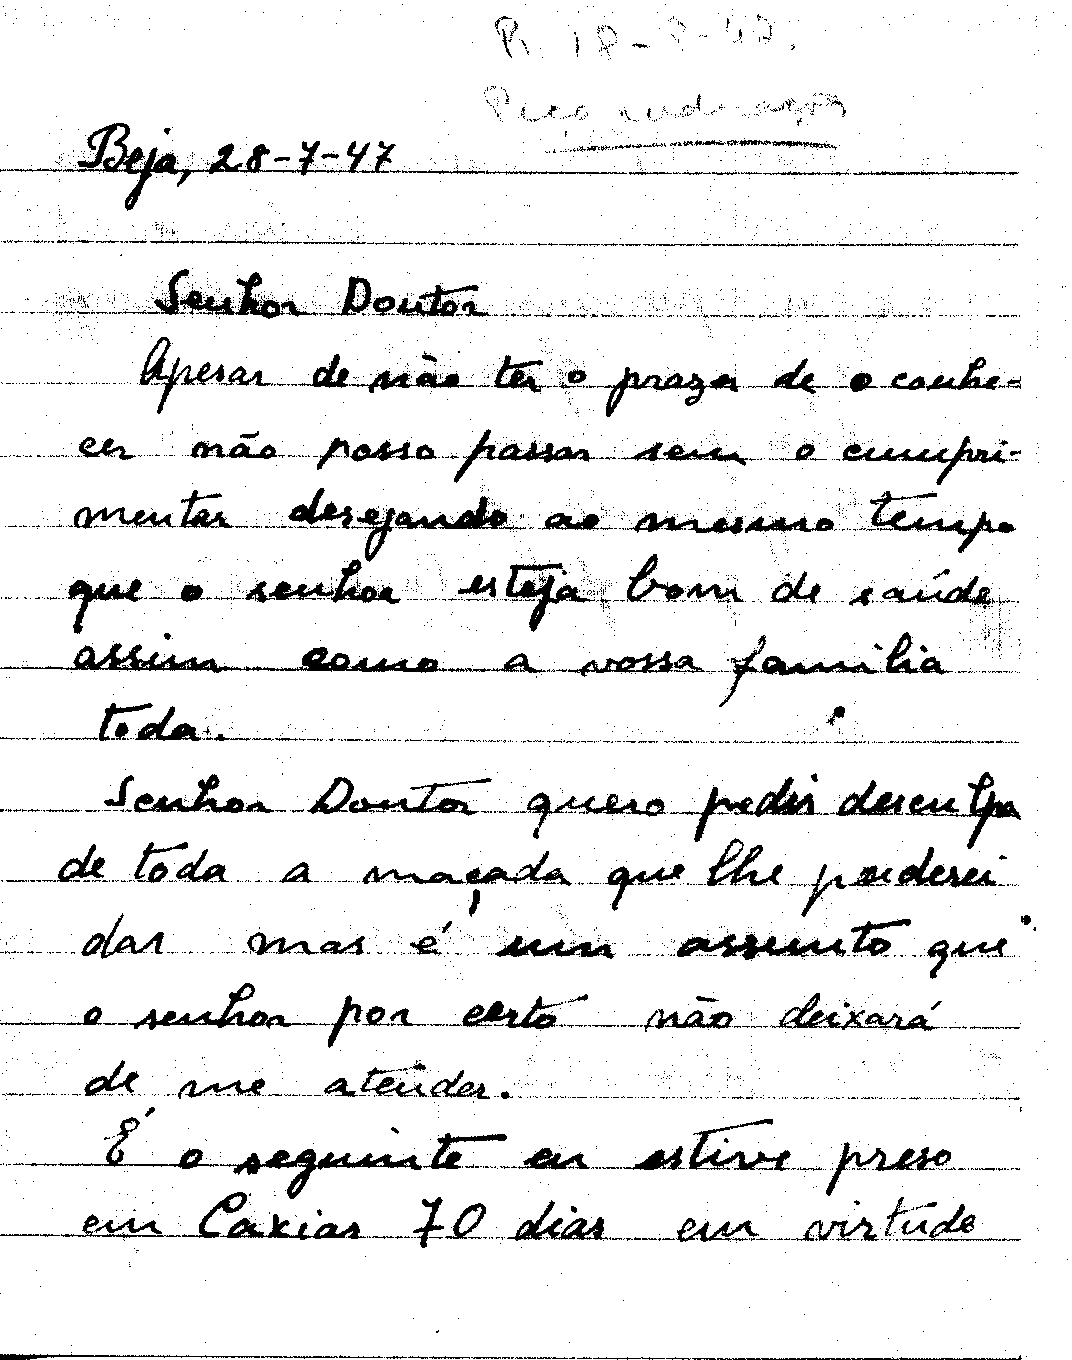 R. 18-8-47.
Peço
Beja, 28-7-47
Senhor Doutor
Apesar de não ter o prazer de o conhe-
cer não posso passar sem o cumpri-
mentar desejando ao mesmo tempo
que o senhor esteja bom de saúde
assim como a vossa familia
toda.
Senhor Doutor quero pedir desculpa
de toda a maçada que lhe poderei
dar mas é um assunto que
o senhor por certo não deixará
de me atender.
É o seguinte eu estive preso
em Caxias 70 dias em virtude